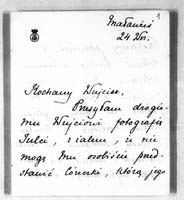 1
Małuwiś
24 Xbr.
Kochany Wujciu,
Przesyłam drogie-
mu Wujciowi fotografię
Julci, z żalem, że nie
mogę Mu osobiście przed-
stawić Córecki, którą jego